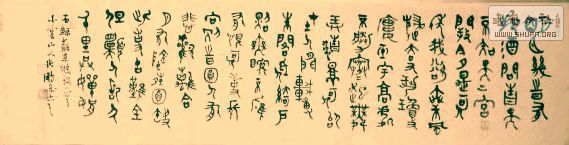 明月幾時有
把酒問青天
不知天上宮
闕今夕是何
年我欲乘風
歸去又恐瓊
樓玉宇高處
不勝寒起舞
弄清影何似
在人間轉
朱閣低綺戶
照無眠不應
有恨何事長
向別時圓人有
悲歡離合
月有陰晴圓缺
此事古難全
但願人長久
千里共嬋娟
WWW.SHUFA.ORG